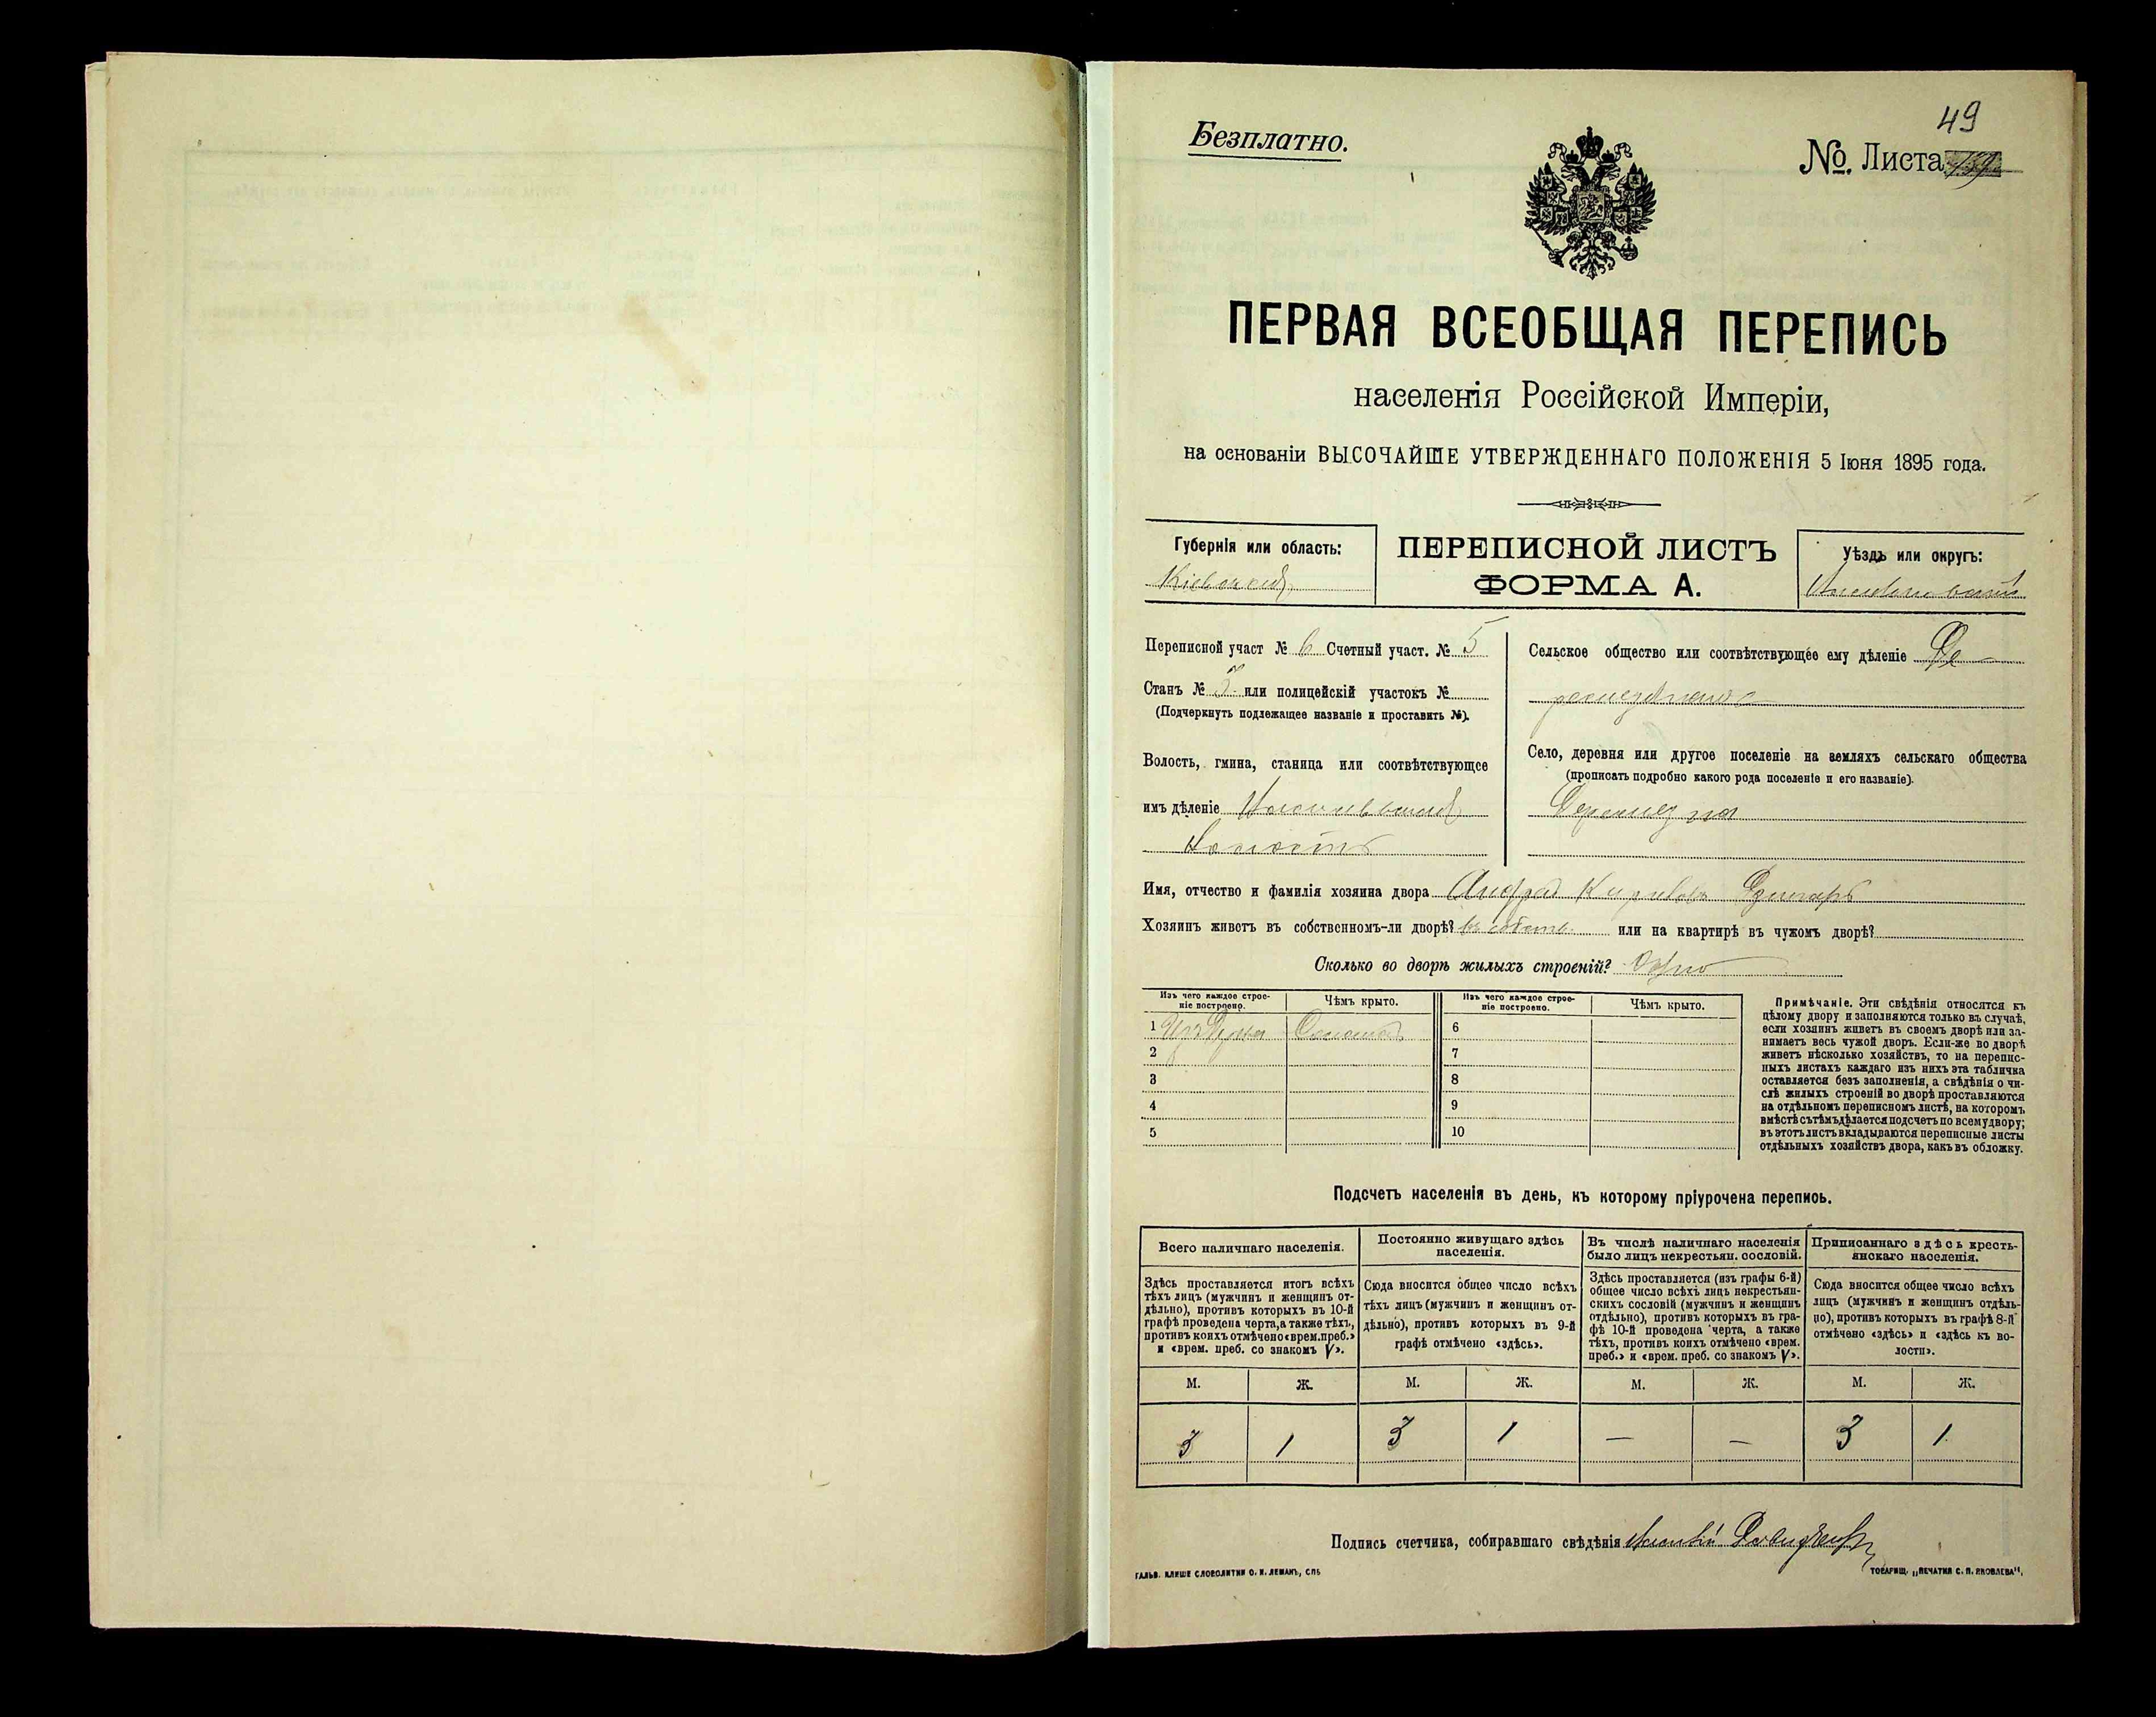 49
Безплатно.
№. Листа
ПЕРВАЯ ВСЕОБЩАЯ ПЕРЕПИСЬ
населенія Россійской Имперіи,
на основаніи ВЫСОЧАЙШЕ УТВЕРЖДЕННАГО ПОЛОЖЕНІЯ 5 Іюня 1895 года.
Губернія или область:
Кіевская
ПЕРЕПИСНОЙ ЛИСТЪ
ФОРМА А.
Уѣздъ или округъ:
Переписной участ № 6 Счетный участ. № 5
Станъ № 3 или полицейскій участокъ №
(Подчеркнуть подлежащее названіе и проставить №).
Волость, гмина, станица или соотвѣтствующее
имъ дѣленіе
Волость
Сельское общество или соотвѣтствующее ему дѣленіе
Село, деревня или другое поселеніе на земляхъ сельскаго общества
(прописать подробно какого рода поселеніе и его названіе).
Имя, отчество и фамилія хозяина двора Андрей
Хозяинъ живетъ въ собственномъ-ли дворѣ? въ собств. или на квартирѣ въ чужомъ дворѣ?
Сколько во дворѣ жилыхъ строеній? Одно
Изъ чего каждое строе-
ніе построено.
Чѣмъ крыто.
Изъ чего каждое строе-
ніе построено.
Чѣмъ крыто.
1 Соломой 6
2 7
3 8
4 9
5 10
Примѣчаніе. Эти свѣдѣнія относятся къ
цѣлому двору и заполняются только въ случаѣ,
если хозяинъ живетъ въ своемъ дворѣ или за-
нимаетъ весь чужой дворъ. Если-же во дворѣ
живетъ нѣсколько хозяйствъ, то на перепис-
ныхъ листахъ каждаго изъ нихъ эта табличка
оставляется безъ заполненія, а свѣдѣнія о чи-
слѣ жилыхъ строеній во дворѣ проставляются
на отдѣльномъ переписномъ листѣ, на которомъ
вмѣстѣ съ тѣмъ дѣлается подсчетъ по всему двору;
въ этотъ листъ вкладываются переписные листы
отдѣльныхъ хозяйствъ двора, какъ въ обложку.
Подсчетъ населенія въ день, къ которому пріурочена перепись.
Всего наличнаго населенія.
Здѣсь проставляется итогъ всѣхъ
тѣхъ лицъ (мужчинъ и женщинъ от-
дѣльно), противъ которыхъ въ 10-й
графѣ проведена черта, а также тѣхъ,
противъ коихъ отмѣчено «врем. преб.»
и «врем. преб. со знакомъ V».
Постоянно живущаго здѣсь
населенія.
Сюда вносится общее число всѣхъ
тѣхъ лицъ (мужчинъ и женщинъ от-
дѣльно), противъ которыхъ въ 9-й
графѣ отмѣчено «здѣсь».
Въ числѣ наличнаго населенія
было лицъ некрестьян. сословій.
Здѣсь проставляется (изъ графы 6-й)
общее число всѣхъ лицъ некрестьян-
скихъ сословій (мужчинъ и женщинъ
отдѣльно), противъ которыхъ въ гра-
фѣ 10-й проведена черта, а также
тѣхъ, противъ коихъ отмѣчено «врем.
преб.» и «врем. преб. со знакомъ V».
Приписаннаго здѣсь кресть-
янскаго населенія.
Сюда вносится общее число всѣхъ
лицъ (мужчинъ и женщинъ отдѣль-
но), противъ которыхъ въ графѣ 8-й
отмѣчено «здѣсь» и «здѣсь къ во-
лости».
М. Ж. М. Ж. М. Ж. М. Ж.
3 1 3 1 — — 3 1
Подпись счетчика, собиравшаго свѣдѣнія
ГАЛЬВ. КЛИШЕ СЛОВОЛИТНИ О. И. ЛЕМАНЪ, СПБ
ТОВАРИЩ. „ПЕЧАТНЯ С. П. ЯКОВЛЕВА“.